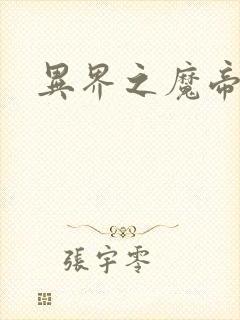 異界之魔帝
張宇零